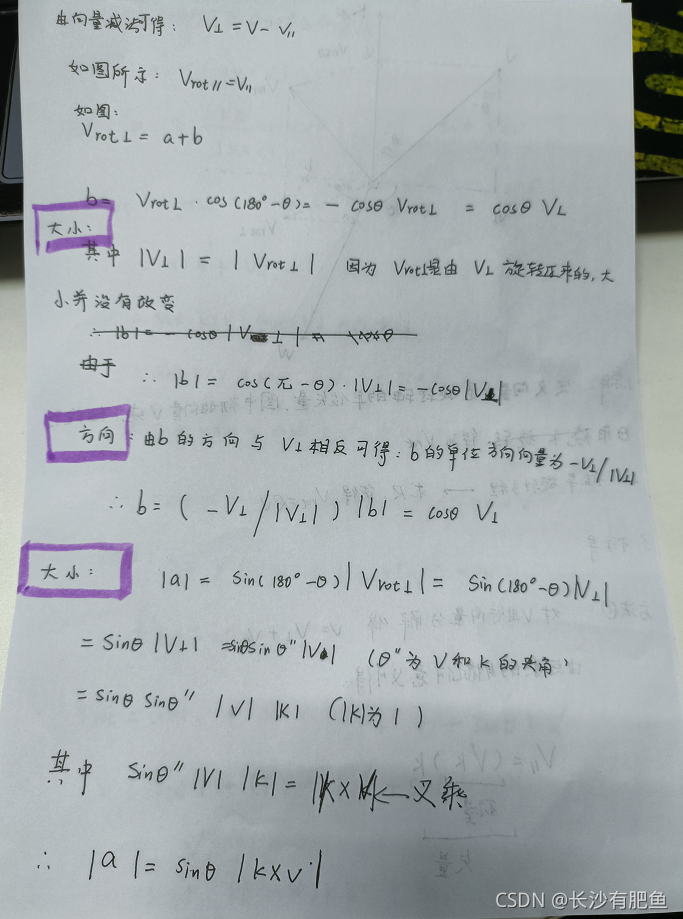 由向量减法可得: V⊥ = V - V∥
如图所示: Vrot∥ = V∥
如图:
Vrot⊥ = a+b
b= Vrot⊥ · cos(180°-θ)= - cosθ Vrot⊥ = cosθ V⊥
大小:
其中 |V⊥| = |Vrot⊥| 因为 Vrot⊥是由 V⊥ 旋转过来的,大
小并没有改变
由于
∴ |b| = cos(π-θ)·|V⊥| = -cosθ|V⊥|
方向: 由b的方向与 V⊥相反可得: b的单位方向向量为 -V⊥/|V⊥|
∴ b = (-V⊥/|V⊥|) |b| = cosθ V⊥
大小: |a| = Sin(180°-θ)|Vrot⊥| = Sin(180°-θ)|V⊥|
= Sinθ |V⊥| =sinθsinθ''|V| (θ''为V和k的夹角)
= sinθ sinθ'' |V| |K| (|K|为1)
其中 sinθ'' |V| |k| = |k×V| ← 叉乘
∴ |a| = sinθ |k×v|
CSDN @长沙有肥鱼